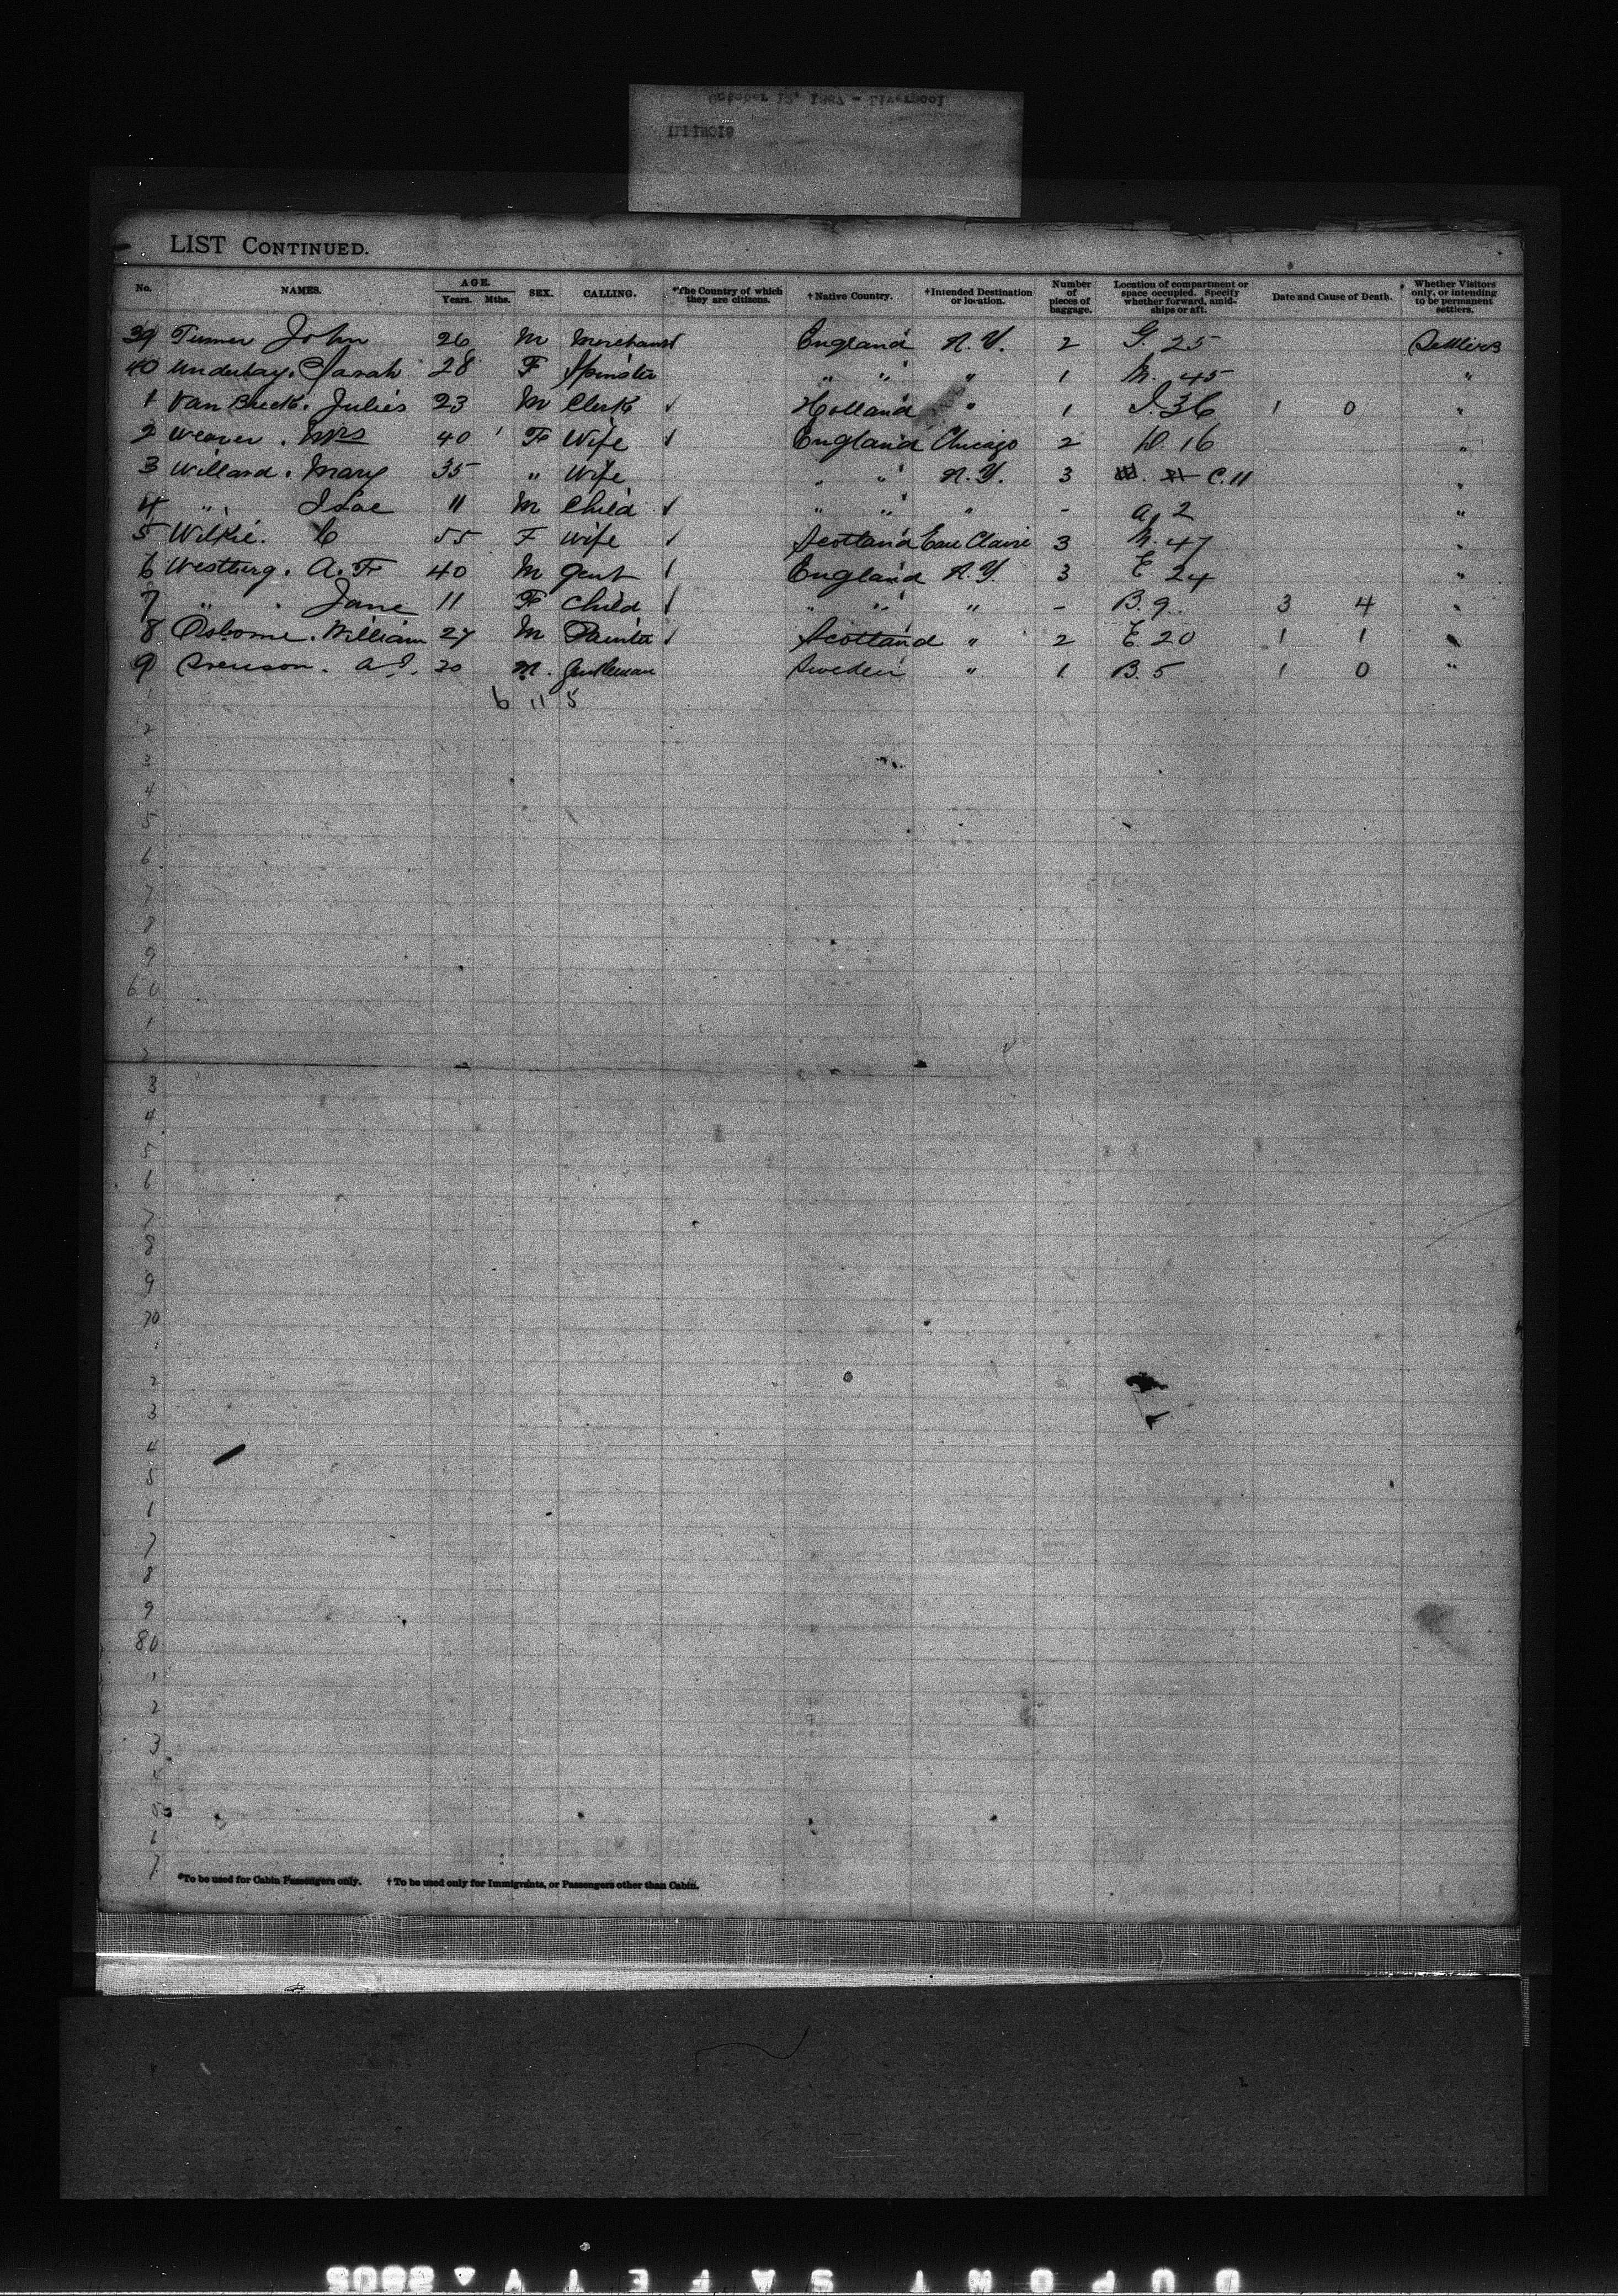 October 12, 1887 - Liverpool
ILLINOIS
LIST CONTINUED.
No. NAMES. AGE. Years. Mths. SEX. CALLING. *The Country of which they are citizens. †Native Country. †Intended Destination or location. Number of pieces of baggage. Location of compartment or space occupied. Specify whether forward, amidships or aft. Date and Cause of Death. Whether Visitors only, or intending to be permanent settlers.
39 Turner John 26 M Merchant England N.Y. 2 G. 25 Settlers
40 Underhay. Sarah 28 F Spinster " " " 1 M. 45 "
1 Van Breek. Julies 23 M Clerk ✓ Holland " 1 I. 36 1 0 "
2 Weaver. Mrs 40 F Wife ✓ England Chicago 2 D. 16 "
3 Willard. Mary 35 " Wife " " N.Y. 3 C. 11 "
4 " Isae 11 M Child ✓ " " " - a, 2 "
5 Wilkie. C 55 F Wife ✓ Scotland Eau Claire 3 M. 47 "
6 Westburg. A. F 40 M Gent ✓ England N.Y. 3 E 24 "
7 " Jane 11 F Child ✓ " " " - B. 9. 3 4 "
8 Osborne. William 27 M Painter ✓ Scotland " 2 E. 20 1 1 "
9 Svenson. A. J. 20 M. Gentleman Sweden " 1 B. 5 1 0 "
1 6 11 5
2
3
4
5
6
7
8
9
60
1
2
3
4
5
6
7
8
9
70
2
3
4
5
1
7
8
9
80
1
2
3
1
7
*To be used for Cabin Passengers only. †To be used only for Immigrants, or Passengers other than Cabin.
DUPONT SAFETY